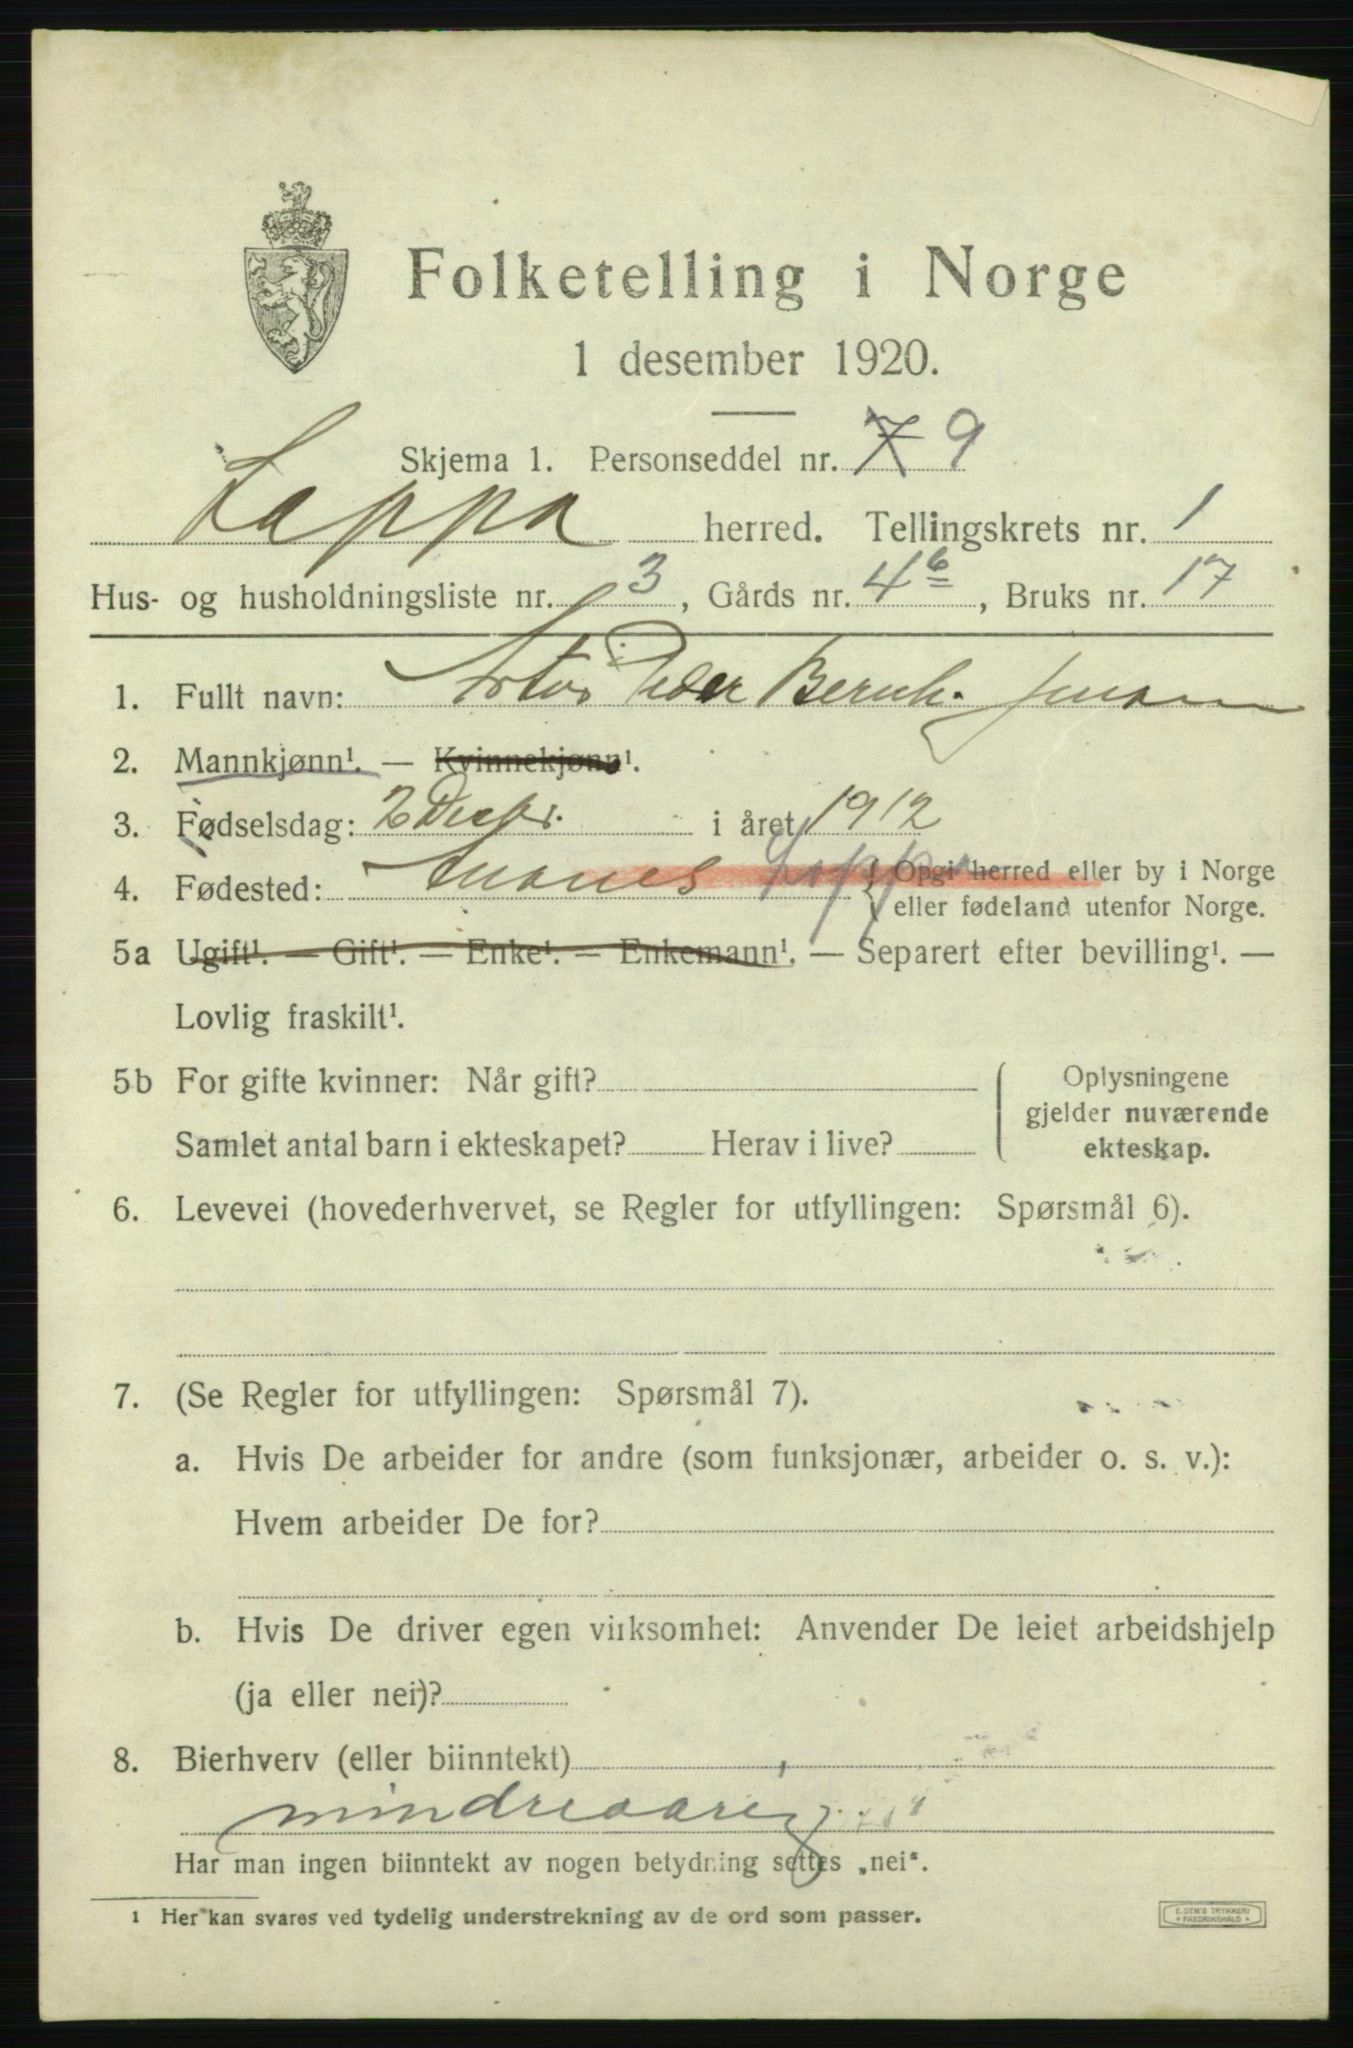 Folketelling i Norge
1 desember 1920.
Skjema 1. Personseddel nr. 7 9
Loppa herred. Tellingskrets nr. 1
Hus- og husholdningsliste nr. 3, Gårds nr. 46, Bruks nr. 17
1. Fullt navn: Peder Bernh.
2. Mannkjønn¹. — Kvinnekjønn¹.
3. Fødselsdag: 2 Decbr. i året 1912
4. Fødested: Loppa { Opgi herred eller by i Norge
eller fødeland utenfor Norge.
5a Ugift¹. — Gift¹. — Enke¹. — Enkemann¹. — Separert efter bevilling¹. —
Lovlig fraskilt¹.
5b For gifte kvinner: Når gift?
Samlet antal barn i ekteskapet? Herav i live?
Oplysningene
gjelder nuværende
ekteskap.
6. Levevei (hovederhvervet, se Regler for utfyllingen: Spørsmål 6).
7. (Se Regler for utfyllingen: Spørsmål 7).
a. Hvis De arbeider for andre (som funksjonær, arbeider o. s. v.):
Hvem arbeider De for?
b. Hvis De driver egen virksomhet: Anvender De leiet arbeidshjelp
(ja eller nei)?
8. Bierhverv (eller biinntekt)
mindreaarig
Har man ingen biinntekt av nogen betydning settes „nei“.
¹ Her kan svares ved tydelig understrekning av de ord som passer.
E. SEM'S TRYKKERI
* FREDRIKSHALD *